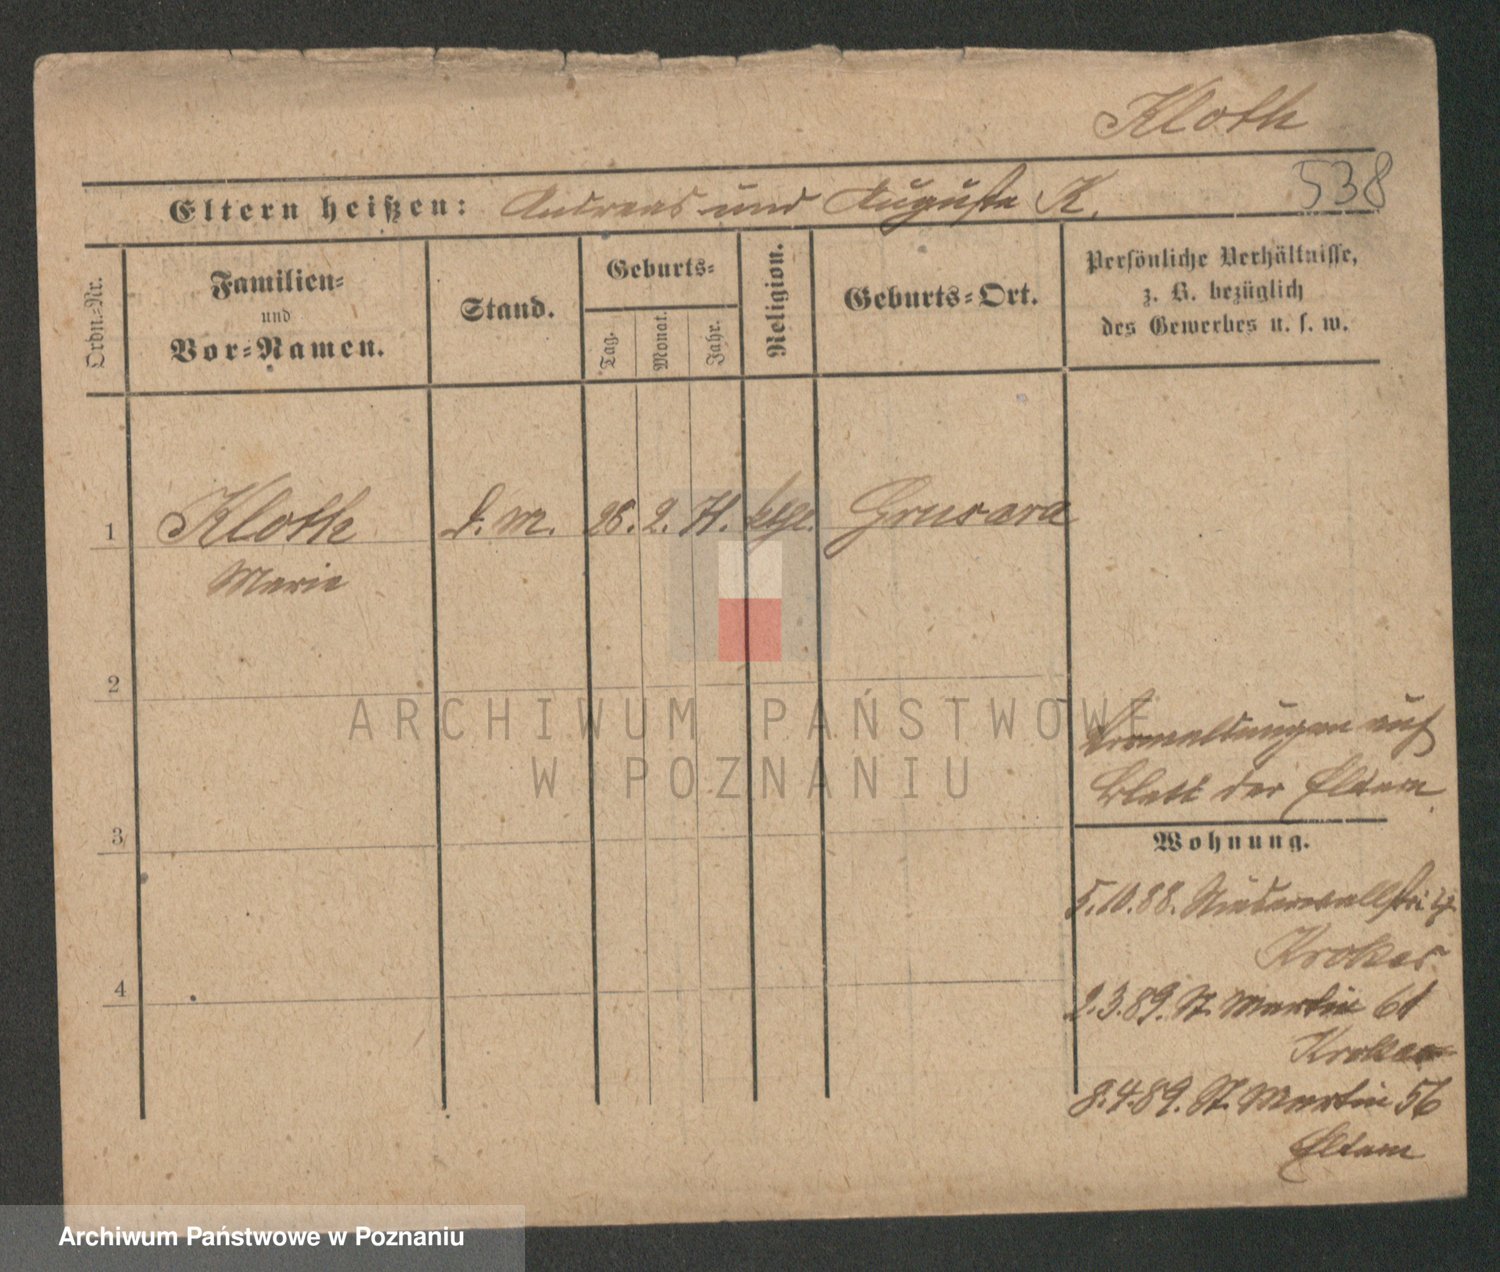 Kloth
538
Eltern heißen: Andreas und Auguste K.
Ordn.-Nr.
Familien-
und
Vor-Namen.
Stand.
Geburts-
Tag.
Monat.
Jahr.
Religion.
Geburts-Ort.
Persönliche Verhältnisse,
z. B. bezüglich
des Gewerbes u. s. w.
1 Kloth d. m. 28. 2. 71. ktl. Gruszara
Marie
2
3
4
ARCHIWUM PAŃSTWOWE
W POZNANIU
auf
Blatt der Eltern
Wohnung.
5.10.88. Niederwallstr.
Kroker
2.3.89. St. Martin 61
Kroker
8.4.89. St. Martin 56
Eltern
Archiwum Państwowe w Poznaniu